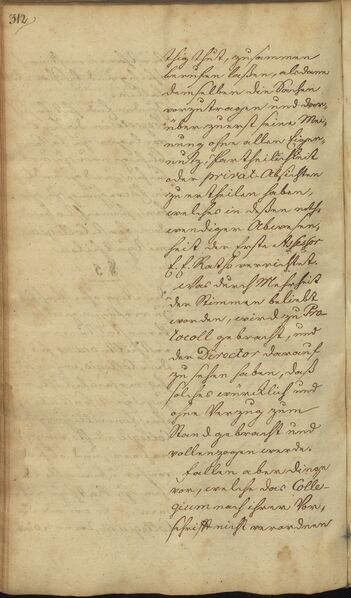 312
thig thut, zusammen
berufen laßen, alsdann
demselben die Sachen
vorzutragen und dar-
über zuerst seine Mei-
nung ohne allen Eigen-
nutz, Partheilichkeit
oder privat-Absichten
zu ertheilen haben,
welches in deßen noth-
wendiger Abwesen-
heit der erste Assessor
E. E. Raths verrichtet.
Was durch Mehrheit
der Stimmen beliebt
worden, wird zu Pro-
tocoll gebracht, und
der Director darauf
zu sehen haben, daß
solches würcklich und
ohne Verzug zum
Stand gebracht und
vollenzogen werde.
Fallen aber Dinge
vor, welche das Colle-
gium nach ihrer Vor-
schrifft nicht verordnen